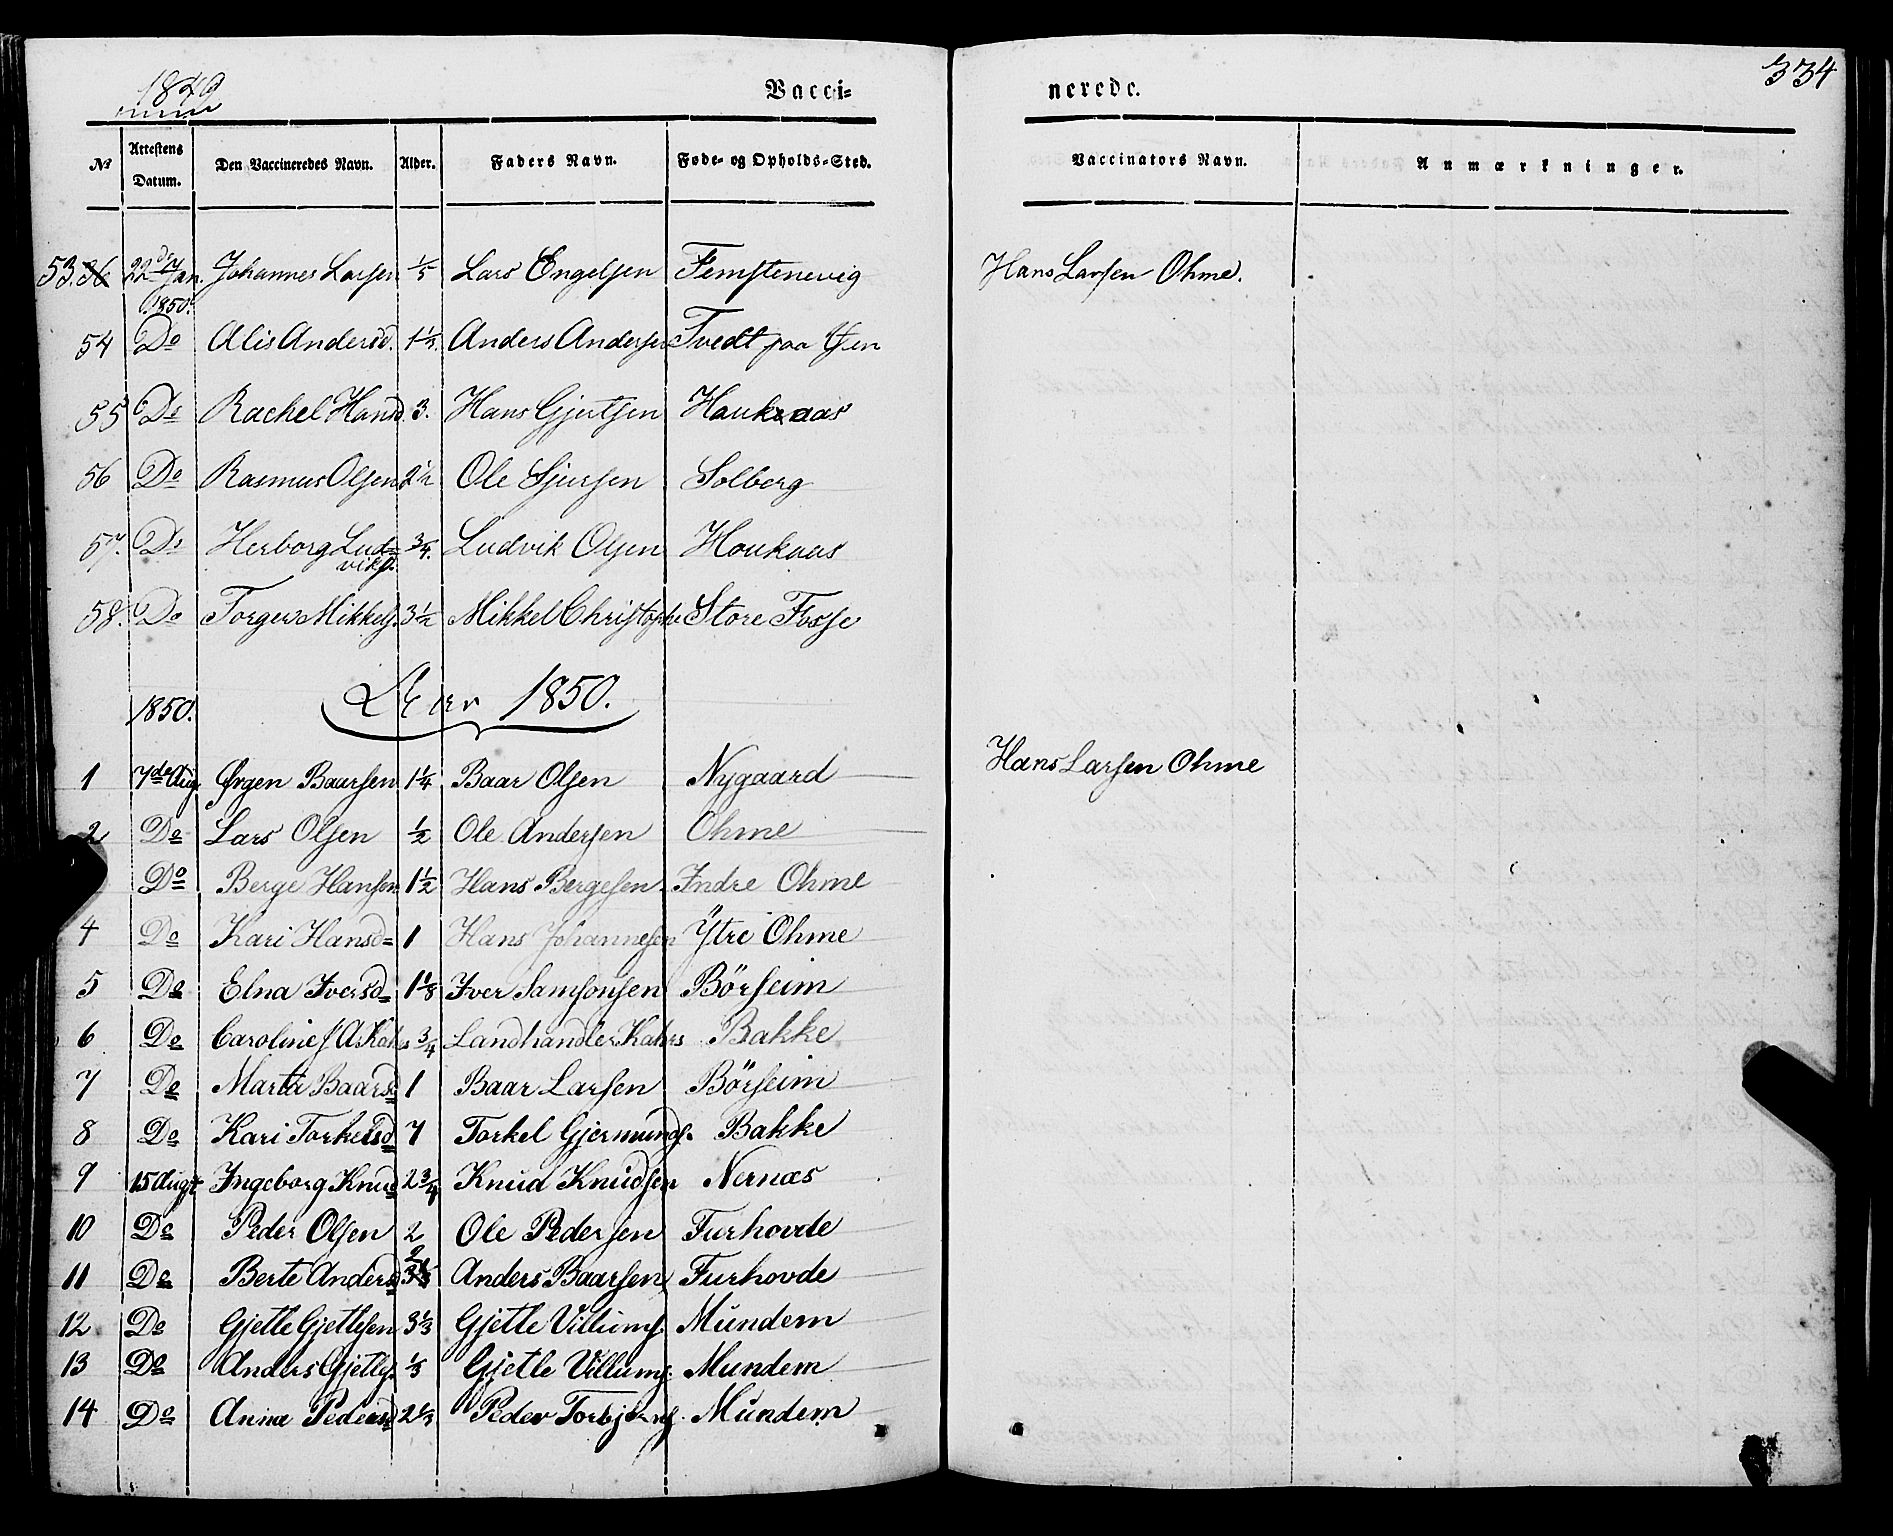 1849
Vacci= nerede. 334
No Attestens Datum. Den Vaccineredes Navn. Alder. Faders Navn. Føde- og Opholds-Sted. Vaccinators Navn. Anmærkninger.
53. 22de Jan. 1850. Johannes Larsen 1/5 Lars Engelsen Femstenevig Hans Larsen Ohme.
54 Do Alis Andersd. Anders Andersen Tvedt paa Øen
55 Do Rachel Hansd. 3. Hans Gjertsen Haukaas
56 Do Rasmus Olsen 2 1/2 Ole Sjursen Solberg
57. Do Herborg Lud= 3/4. Ludvik Olsen Houkaas
viksd.
58. Do Torger Mikkels. 3 1/2 Mikkel Christophe Store Fosse
1850. Aar 1850.
1 7de Aug. Ørgen Baarsen 1 1/4 Baar Olsen Nygaard Hans Larsen Ohme
2 Do Lars Olsen 1/2 Ole Andersen Ohme
Do Berge Hansen 1 1/2 Hans Bergesen Indre Ohme
4 Do Kari Hansd= 1 Hans Johannesen Ytre Ohme
5 Do Elna Iversd= 1 1/8 Iver Samsonsen Börseim
6 Do Caroline A Kahrs 3/4 Landhandler Kahrs Bakke
7 Do Marta Baarsd 1 Baar Larsen Börseim
8 Do Kari Torkelsd 7 Torkel Gjermunds. Bakke
9 15 Augt Ingeborg Knud 2 3/4 Knud Knudsen Nernæs
10 Do Peder Olsen 2 Ole Pedersen Furhovde
11 Do Berte Andersd Anders Baarsen Furhovde
12 Do Gjetle Gjetlesen 3 1/3 Gjetle Villums. Mundem
13 Do Anders Gjetles. 1/3 Gjetle Villums. Mundem
14 Do Anna Pedersd 2 1/3 Peder Torbjörns. Mundem